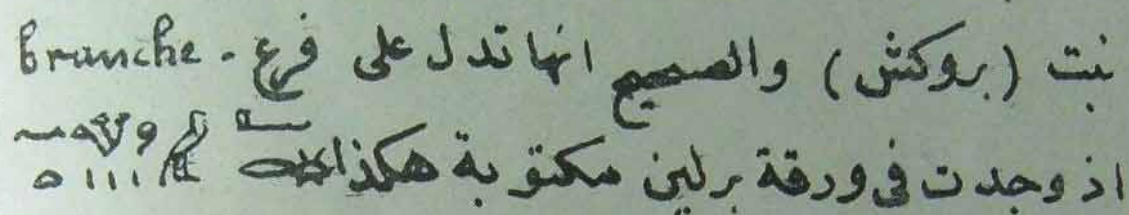 نبت (بروكش) والصحيح انها تدل على فرع - branche
اذ وجدت فى ورقة برلين مكتوبة هكذا